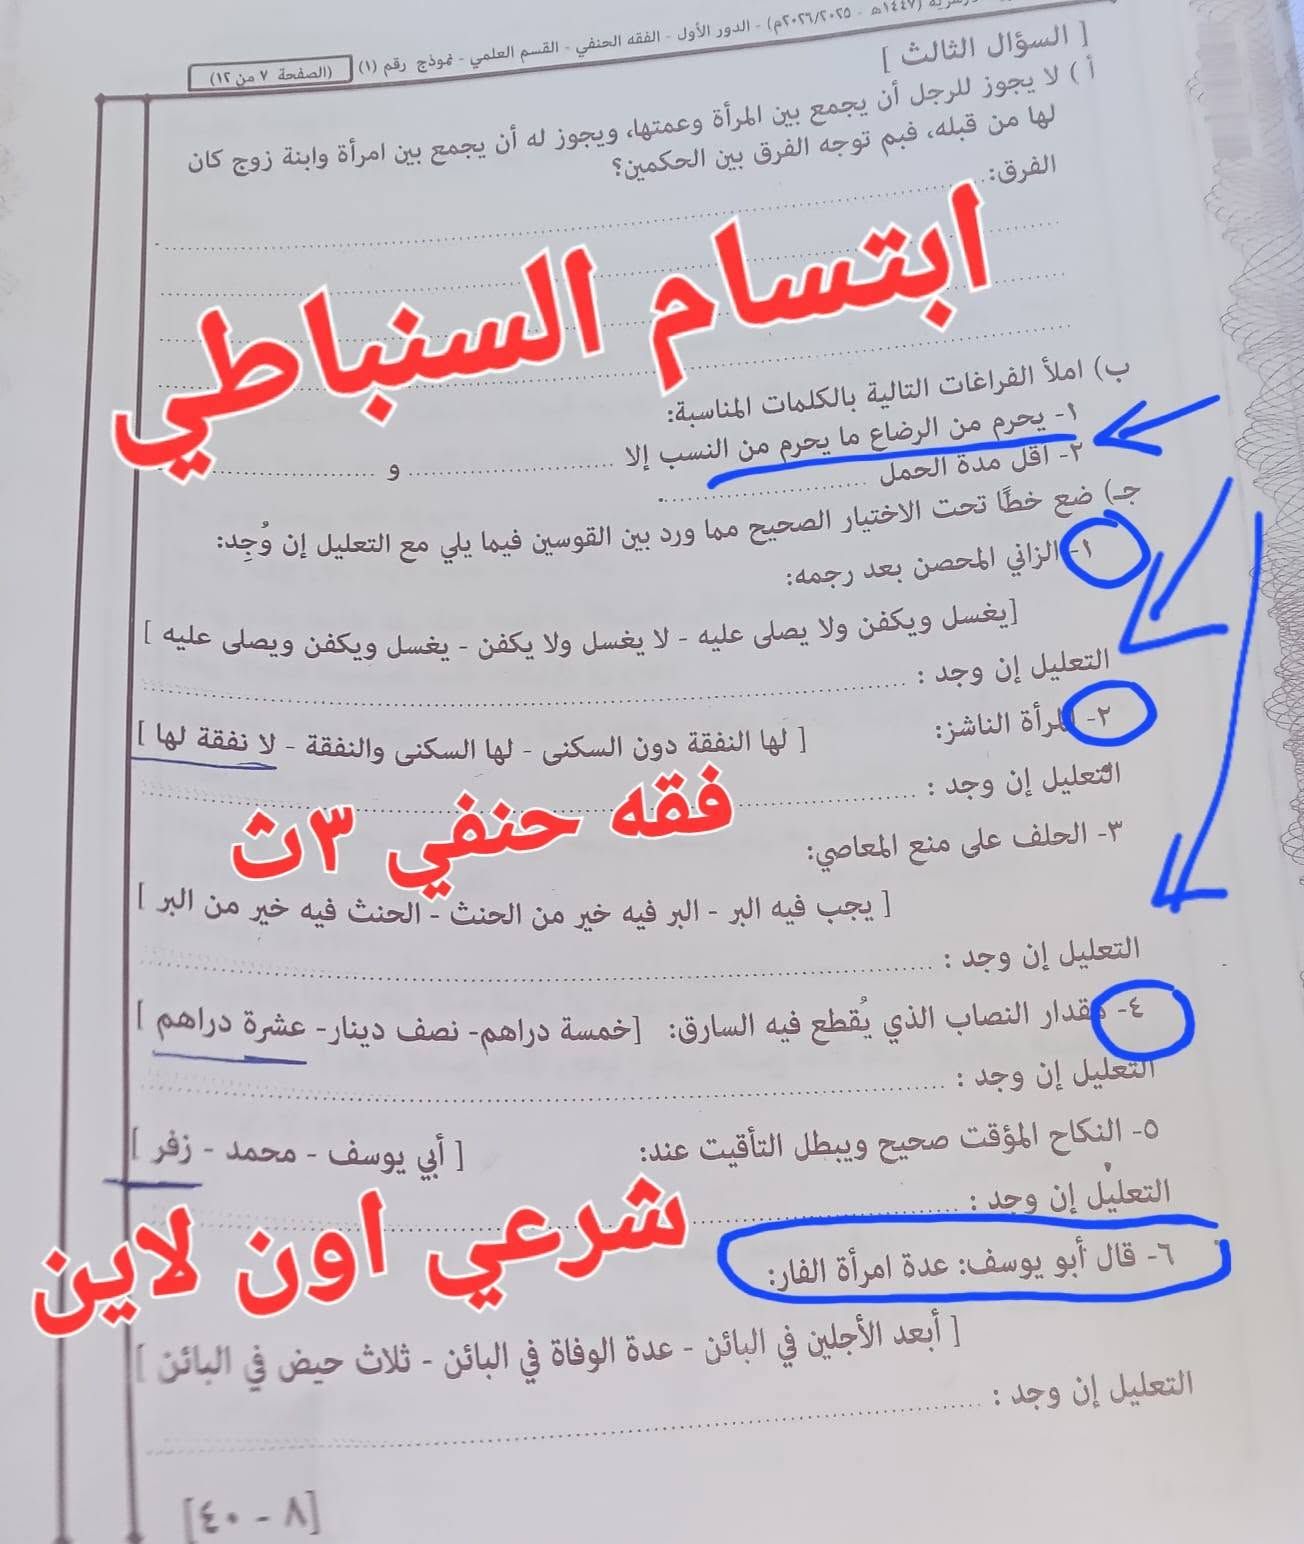 (١٤٤٧هـ - ٢٠٢٥/٢٠٢٦م) - الدور الأول - الفقه الحنفي - القسم العلمي - نموذج رقم (١) (الصفحة ٧ من ١٢)
[ السؤال الثالث ]
أ ) لا يجوز للرجل أن يجمع بين المرأة وعمتها، ويجوز له أن يجمع بين امرأة وابنة زوج كان
لها من قبله، فبم توجه الفرق بين الحكمين؟
الفرق:
ابتسام السنباطي
ب) املأ الفراغات التالية بالكلمات المناسبة:
١- يحرم من الرضاع ما يحرم من النسب إلا و
٢- أقل مدة الحمل
جـ) ضع خطًّا تحت الاختيار الصحيح مما ورد بين القوسين فيما يلي مع التعليل إن وُجِد:
١- الزاني المحصن بعد رجمه:
[يغسل ويكفن ولا يصلى عليه - لا يغسل ولا يكفن - يغسل ويكفن ويصلى عليه ]
التعليل إن وجد :
٢- المرأة الناشز: [ لها النفقة دون السكنى - لها السكنى والنفقة - لا نفقة لها ]
التعليل إن وجد :
فقه حنفي ٣ث
٣- الحلف على منع المعاصي:
[ يجب فيه البر - البر فيه خير من الحنث - الحنث فيه خير من البر ]
التعليل إن وجد :
٤- مقدار النصاب الذي يُقطع فيه السارق: [خمسة دراهم- نصف دينار- عشرة دراهم ]
التعليل إن وجد :
٥- النكاح المؤقت صحيح ويبطل التأقيت عند: [ أبي يوسف - محمد - زفر ]
التعليل إن وجد :
شرعي اون لاين
٦- قال أبو يوسف: عدة امرأة الفار:
[ أبعد الأجلين في البائن - عدة الوفاة في البائن - ثلاث حيض في البائن ]
التعليل إن وجد :
[٨ - ٤٠]